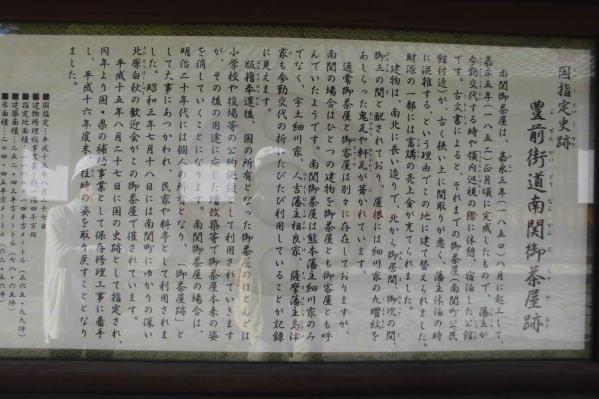 国指定史跡
豊前街道南関御茶屋跡
ぶぜんかいどうなんかんおちゃやあと
南関御茶屋は、嘉永三年(一八五〇)八月に起工して、
嘉永五年(一八五二)正月頃に完成したもので、藩主が
参勤交代する時や領内巡視の際に休憩、宿泊した公館
です。古文書によると、それまでの御茶屋(南関町公民
館付近)が、古く狭い上に間取りが悪く、藩主休泊の時
に混雑する、という理由でこの地に建て替えられました。
財源の一部には富講の売上金が充てられました。
建物は、南北に長い造りで、北から御居間、御次の間、
御三の間と配されており、屋根には細川家の九曜紋を
あしらった鬼瓦や軒瓦が葺かれています。
通常御茶屋と御客屋は別々に存在しておりますが、
南関の場合はひとつの建物を御茶屋とも御客屋とも呼
んでいたようです。南関御茶屋は熊本藩主細川家のみ
でなく、宇土細川家、人吉藩主相良家、薩摩藩主島津
家も参勤交代の折にたびたび利用していることが記録
に見えます。
版籍奉還後、国の所有となった御茶屋のほとんどは、
小学校や役場等の公的施設として利用されていきます
が、その後の用途に応じた増改築等で御茶屋本来の姿
を消していくことになります。南関御茶屋の場合は、
明治二十年代には個人の所有となり、「御茶屋跡」と
して大事にあつかわれ、民家や料亭として利用されま
した。昭和三年七月十八日には南関町にゆかりの深い
北原白秋の歓迎会がこの御茶屋で催されています。
平成十五年八月二十七日に国の史跡として指定され、
同年より国・県の補助事業として保存修理工事に着手
し、平成十六年度末、往時の姿を取り戻すこととなり
ました。
■国指定:平成十五年八月二十七日
■建物修理総事業費:約一億四千万円